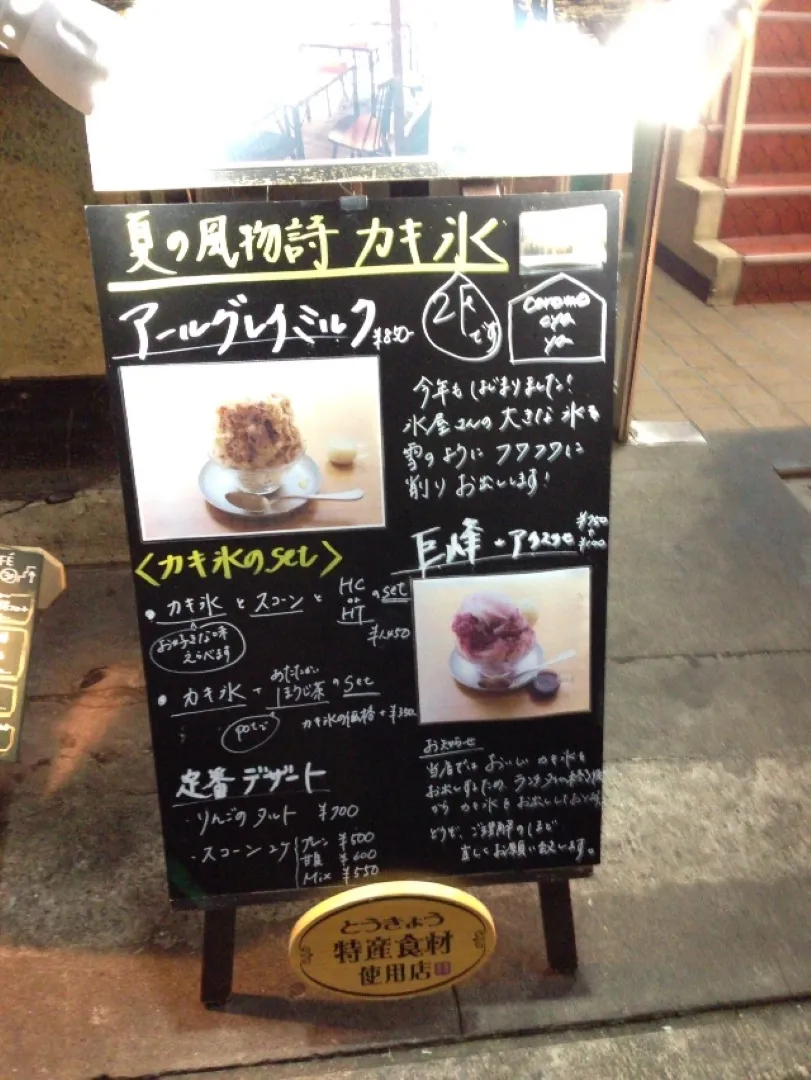 夏の風物詩 カキ氷
アールグレイミルク ¥850-
2Fです
coromo
oya
ya
今年もはじまりました!
氷屋さんの大きな氷を
雪のようにフワフワに
削りお出しします!
<カキ氷のset>
・カキ氷とスコーンと HC or HTのset
お好きな味
えらべます
¥1,450
・カキ氷+あたたかいほうじ茶のset
potで
カキ氷の価格+¥350
巨峰 ¥750
+¥100
お知らせ
当店ではおいしいカキ氷を
お出しするため、ランチタイムの終了後
からカキ氷をお出ししして
どうぞ、ご理解のほど
宜しくお願い致します。
定番デザート
・りんごのタルト ¥700
・スコーン2ケ
プレーン ¥500
甘夏 ¥600
Mix ¥550
とうきょう
特産食材
使用店